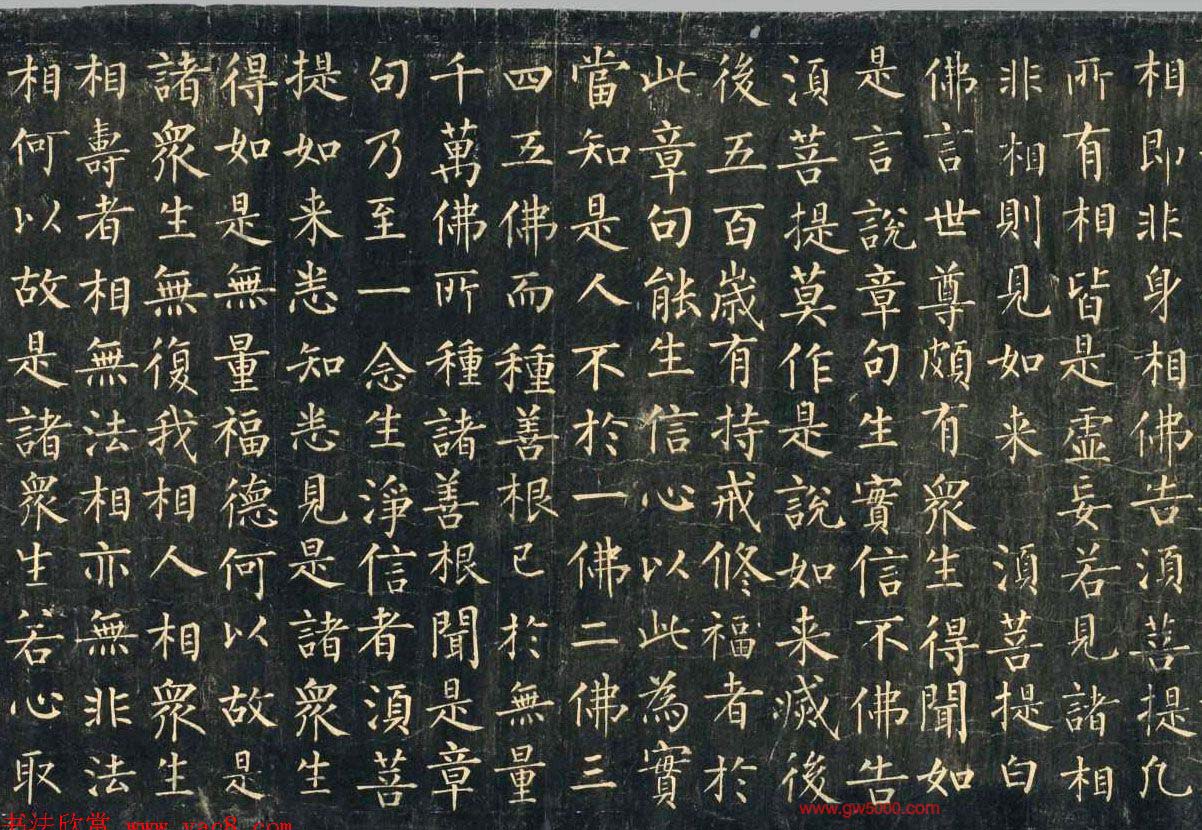 相即非身相佛告湏菩提凡
所有相皆是虛妄若見諸相
非相則見如来 湏菩提白
佛言世尊頗有衆生得聞如
是言說章句生實信不佛告
湏菩提莫作是說如来滅後
後五百歲有持戒修福者於
此章句能生信心以此為實
當知是人不於一佛二佛三
四五佛而種善根已於無量
千萬佛所種諸善根聞是章
句乃至一念生淨信者湏菩
提如来悉知悉見是諸衆生
得如是無量福德何以故是
諸衆生無復我相人相衆生
相壽者相無法相亦無非法
相何以故是諸衆生若心取
www.gw5000.com
书法欣赏 www.yac8.com